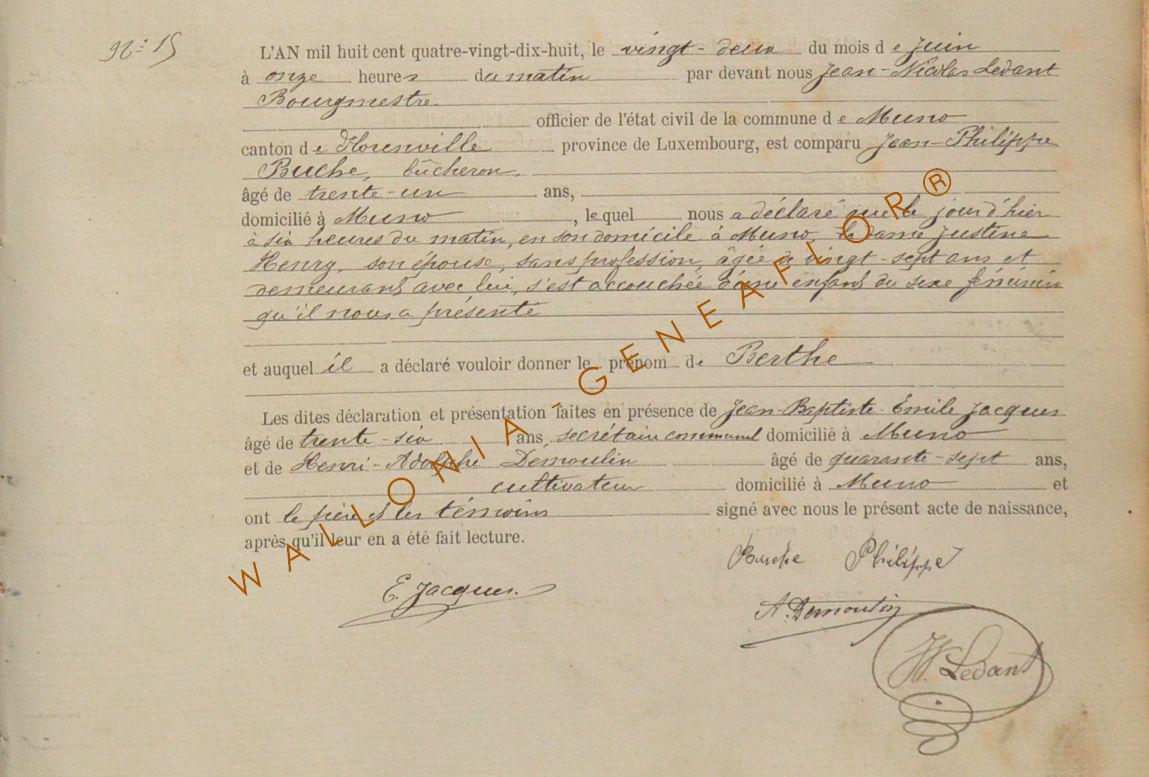 Nº 15
L'AN mil huit cent quatre-vingt-dix-huit, le vingt-deux du mois de juin
à onze heures du matin par devant nous Jean-Nicolas Ledant
Bourgmestre
officier de l'état civil de la commune de Muno
canton de Florenville province de Luxembourg, est comparu Jean-Philippe
Buche, bûcheron,
âgé de trente-un ans,
domicilié à Muno, lequel nous a déclaré que le jour d'hier
à six heures du matin, en son domicile à Muno, la dame Justine
Henry, son épouse, sans profession, âgée de vingt-sept ans et
demeurant avec lui, s'est accouchée d'un enfant du sexe féminin
qu'il nous a présenté
et auquel il a déclaré vouloir donner le prénom de Berthe
Les dites déclaration et présentation faites en présence de Jean-Baptiste-Emile Jacques
âgé de trente-six ans secrétaire communal domicilié à Muno
et de Henri-Adolphe Demoulin âgé de quarante-sept ans,
cultivateur domicilié à Muno et
ont le père et les témoins signé avec nous le présent acte de naissance,
après qu'il leur en a été fait lecture.
Buche Philippe
E. Jacques.
A. Demoulin
JN. Ledant
WALLONIA-GENEAFLOR®